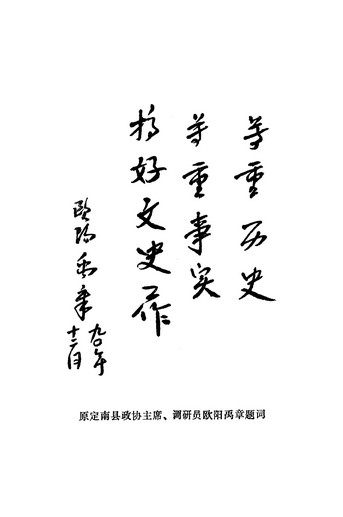 尊重历史
尊重事实
搞好文史工作
欧阳禹章
九〇年
十二月
原定南县政协主席、调研员欧阳禹章题词